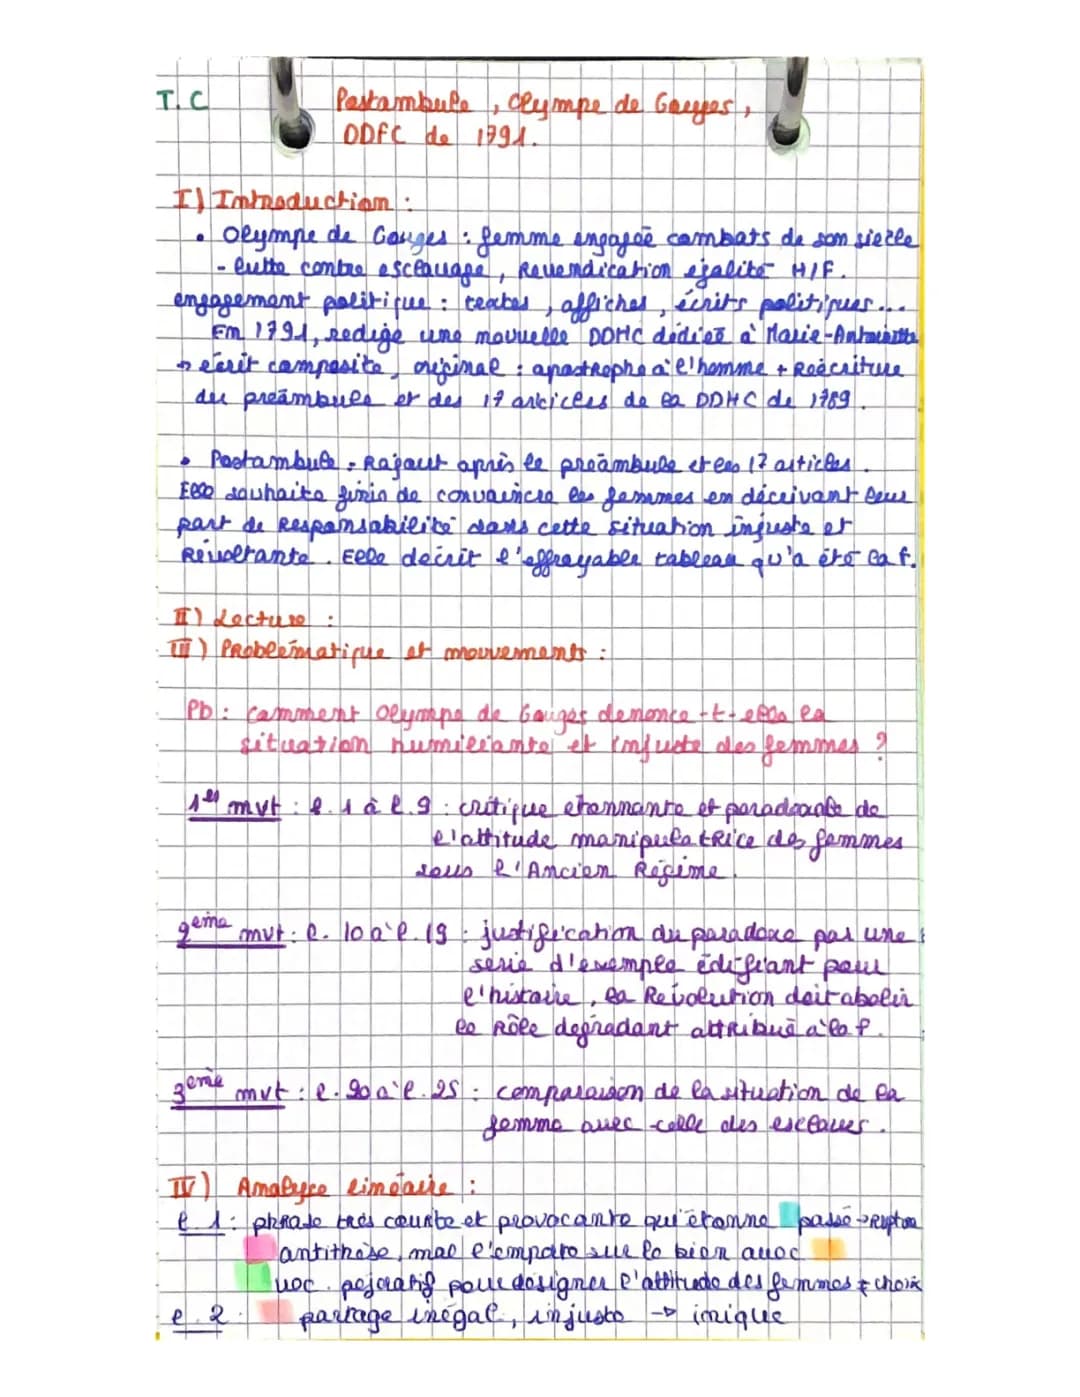 T.C
Postambule, Olympe de Gouges,
DDFC de 1791.
I) Introduction :
• Olympe de Gouges : femme engagée combats de son siècle
- lutte contre esclavage, Revendication égalité H/F.
engagement politique : textes, affiches, écrits politiques...
En 1791, rédige une nouvelle DDHC dédiée à Marie-Antoinette
→ écrit composite, original : apostrophe à l'homme + Réécriture
du préambule et des 17 articles de la DDHC de 1789.
• Postambule : Rajout après le préambule et les 17 articles.
Elle souhaite finir de convaincre les femmes en décrivant leur
part de Responsabilité dans cette situation injuste et
Révoltante. Elle décrit l'effroyable tableau qu'a été la f.
II) Lecture :
III) Problématique et mouvements :
Pb : comment Olympe de Gouges dénonce-t-elle la
situation humiliante et injuste des femmes ?
1er mvt : l. 1 à l. 9 : critique étonnante et paradoxale de
l'attitude manipulatrice des femmes
sous l'Ancien Régime.
2eme mvt : l. 10 à l. 19 : justification du paradoxe par une
serie d'exemple édifiant pour
l'histoire, la Révolution doit abolir
le Rôle dégradant attribué à la f.
3eme mvt : l. 20 à l. 25 : comparaison de la situation de la
femme avec celle des esclaves.
IV) Analyse linéaire :
l. 1 : phrase très courte et provocante qui étonne passé →
antithèse, mal l'emporte sur le bien avec
voc. pejoratif pour désigner l'attitude des femmes ≠ choix
l. 2 : partage inégal, injuste → inique